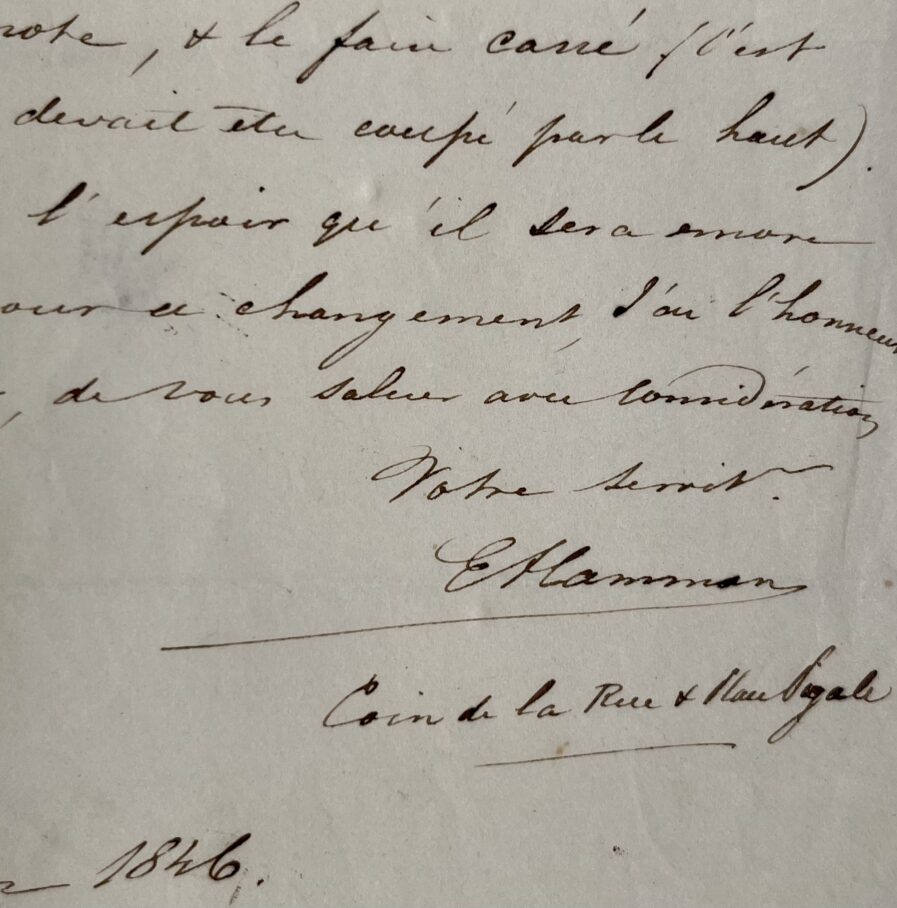 note, & le faire carré (c'est
devait être coupé par le haut).
l'espoir qu'il sera encore
our ce changement, J'ai l'honneur
, de vous saluer avec considération
Votre servitr.
E Hamman
Coin de la Rue & Place Pigale
1846.